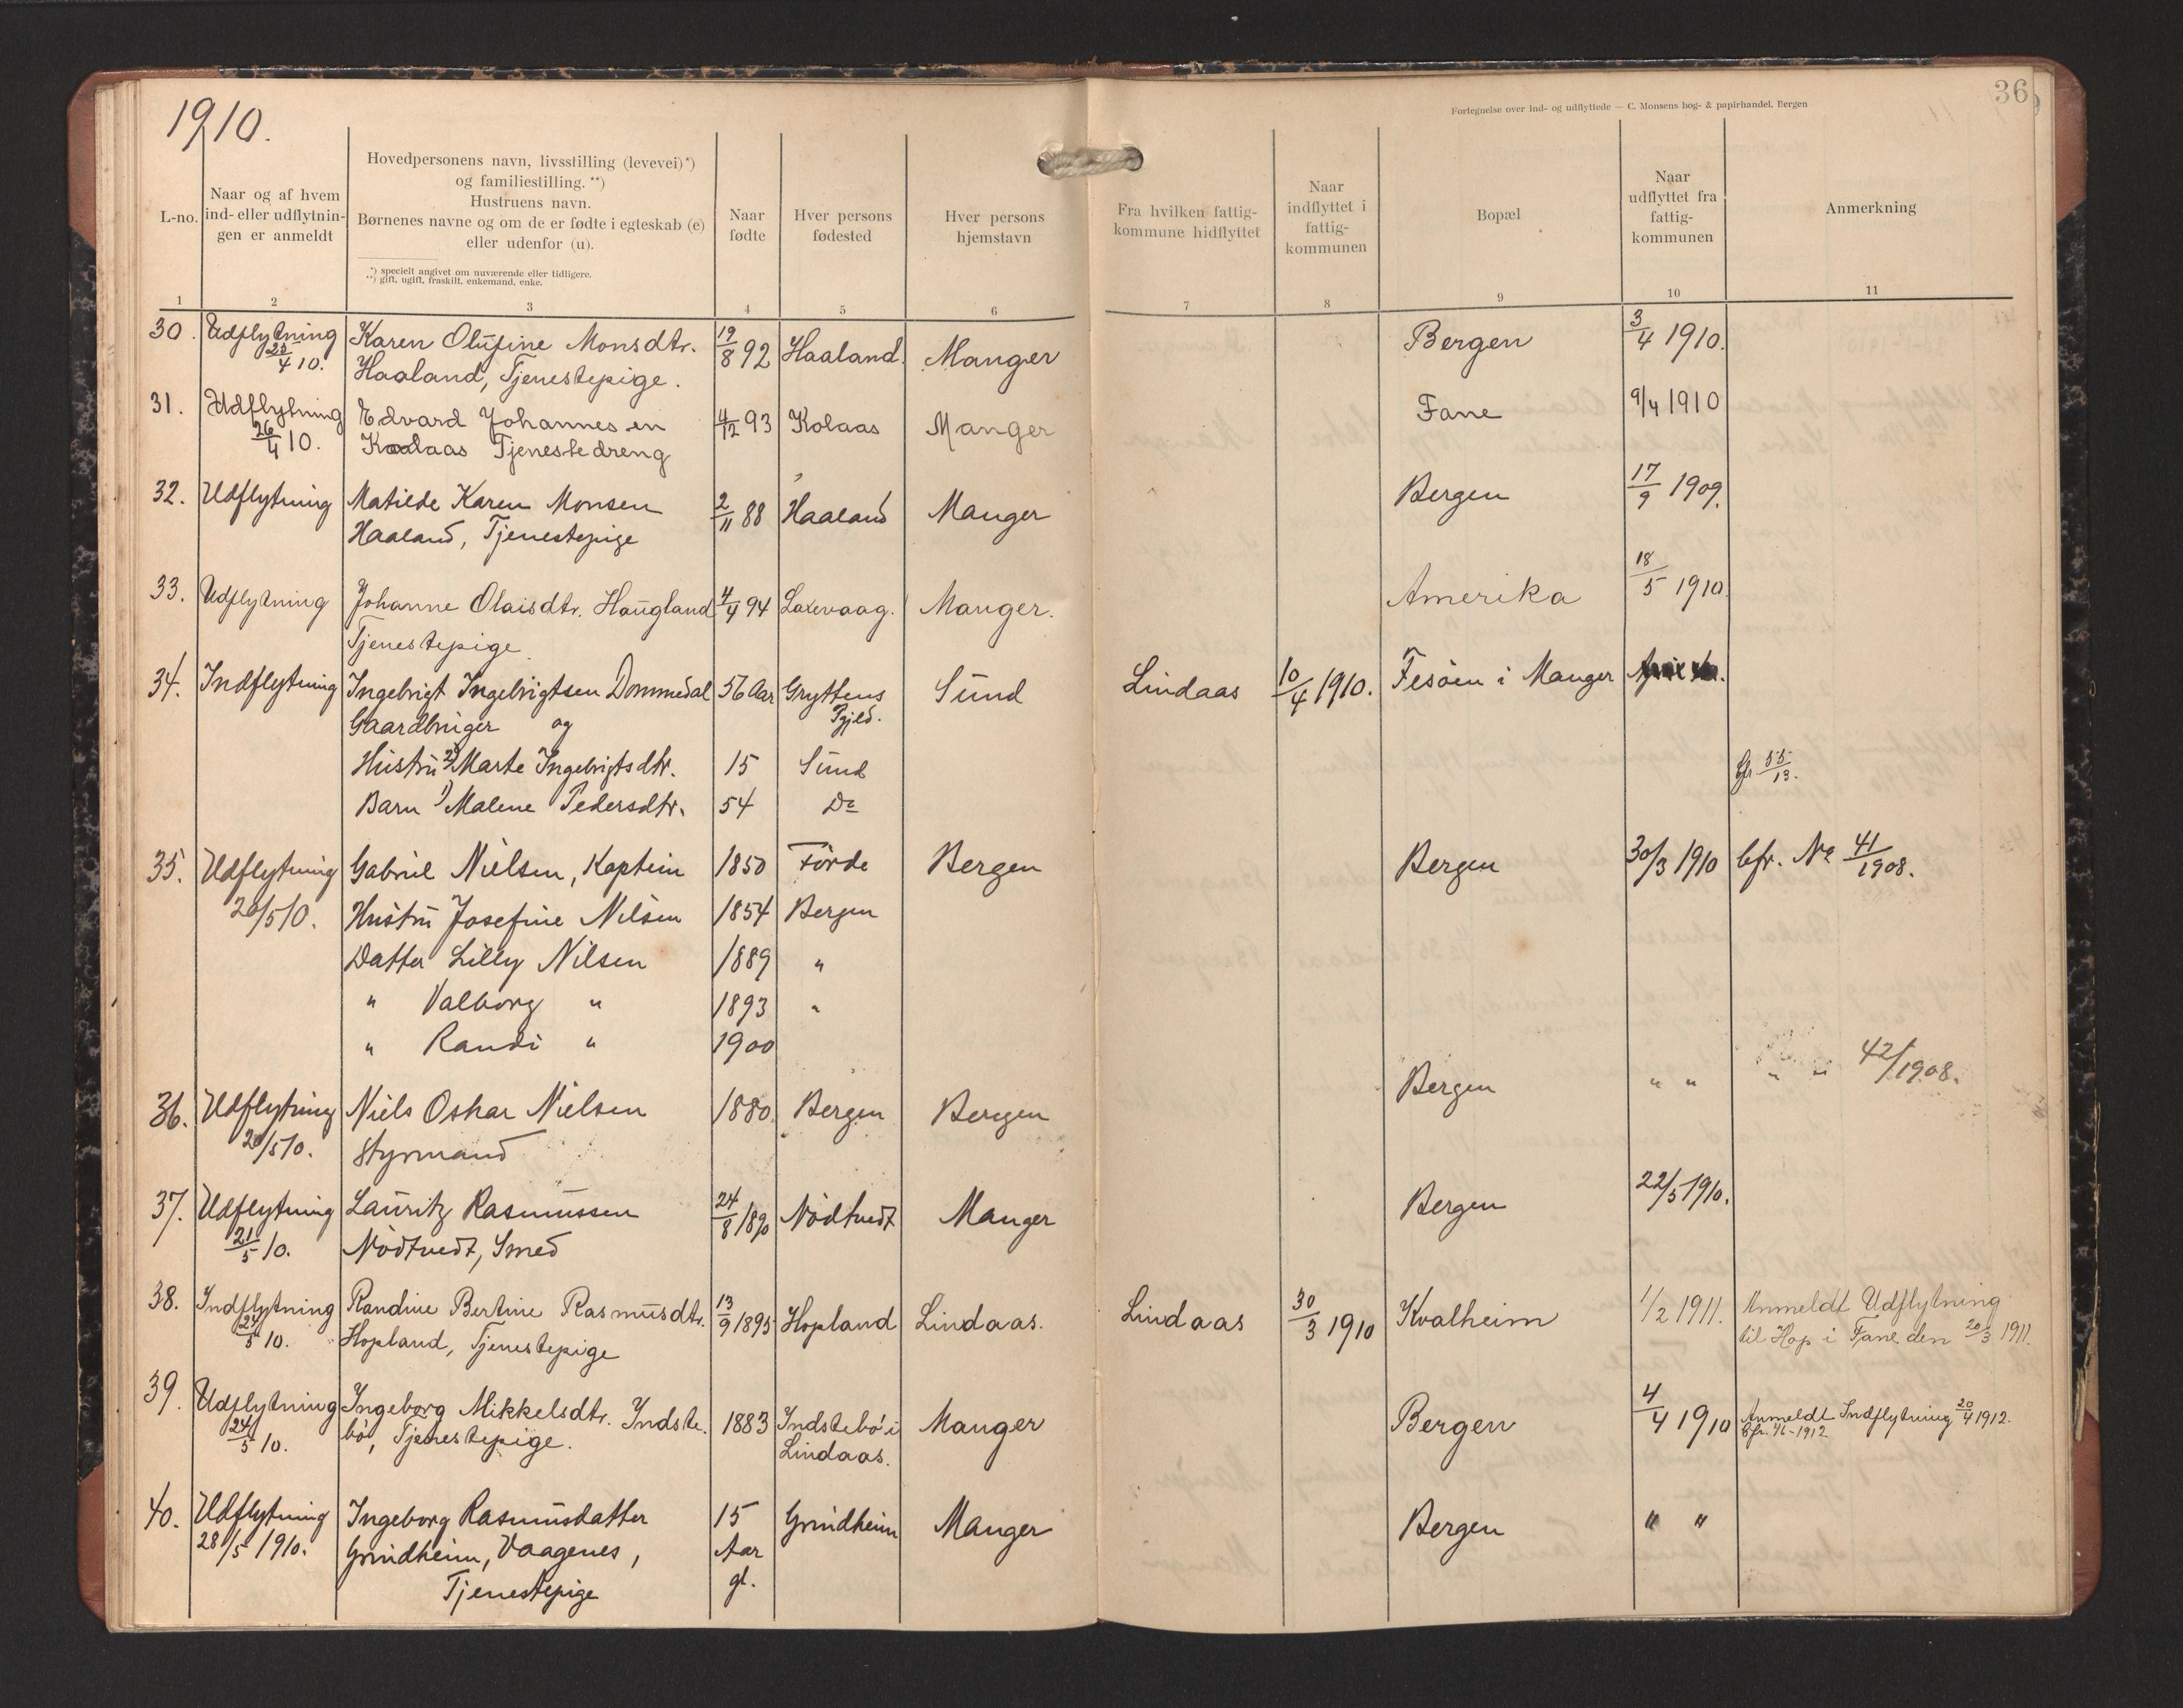 1910.
36
Fortegnelse over ind- og udflyttede — C. Monsens bog- & papirhandel, Bergen
L-no.
Naar og af hvem
ind- eller udflytnin-
gen er anmeldt
Hovedpersonens navn, livsstilling (levevei)*)
og familiestilling. **)
Hustruens navn.
Børnenes navne og om de er fødte i egteskab (e)
eller udenfor (u).
*) specielt angivet om nuværende eller tidligere.
**) gift, ugift, fraskilt, enkemand, enke.
Naar
fødte
Hver persons
fødested
Hver persons
hjemstavn
Fra hvilken fattig-
kommune hidflyttet
Naar
indflyttet i
fattig-
kommunen
Bopæl
Naar
udflyttet fra
fattig-
kommunen
Anmerkning
1 2 3 4 5 6 7 8 9 10 11
30. Udflytning Karen Olufine Monsdtr. 19/8 92 Haaland. Manger Bergen 3/4 1910.
25/4 10. Haaland, Tjenestepige.
31. Udflytning Edvard Johannesen 4/12 93 Kolaas Manger Fane 9/4 1910
26/4 10. Kolaas Tjenestedreng
32. Udflytning Matilde Karen Monsen 2/11 88 Haaland Manger Bergen 17/9 1909.
Haaland, Tjenestepige
33. Udflytning Johanne Olaisdtr. Haugland 4/4 94 Laxevaag. Manger. Amerika 18/5 1910.
Tjenestepige
34. Indflytning Ingebrigt Ingebrigtsen Dommedal 56 Aar Gryttens Sund Lindaas 10/4 1910. Fesöen i Manger
Gaardbruger og Pgjeld.
Hustru 2) Marte Ingebrigtsdtr. 15 Sund cfr 55/13.
Barn 1) Malene Pedersdtr. 54 Do
35. Udflytning Gabriel Nielsen, Kaptein 1850 Förde Bergen Bergen 30/3 1910 Cfr. No 41/1908.
20/5 10. Hustru Josefine Nilsen 1854 Bergen
Datter Lilly Nilsen 1889 "
" Valborg " 1893 "
" Randi " 1900
36. Udflytning Niels Oskar Nielsen 1880. Bergen Bergen Bergen " " " " 42/1908.
20/5 10. Styrmand
37. Udflytning Lauritz Rasmussen 24/8 1890 Nödtvedt Manger Bergen 22/5 1910.
21/5 10. Nödtvedt, Smed
38. Indflytning Randine Bertine Rasmusdtr. 13/9 1895 Hopland Lindaas. Lindaas 30/3 1910 Kvalheim 1/2 1911. Anmeldt Udflytning
24/5 10. Hopland, Tjenestepige til Hop i Fane den 20/3 1911.
39. Udflytning Ingeborg Mikkelsdtr. Indste- 1883 Indstebö i Manger Bergen 4/4 1910 Anmeldt Indflytning 20/4 1912.
24/5 10. bö, Tjenestepige. Lindaas. Cfr. 46-1912
40. Udflytning Ingeborg Rasmusdatter 15 Grindheim Manger Bergen " "
28/5 1910. Grindheim, Vaagenes, Aar
Tjenestepige gl.